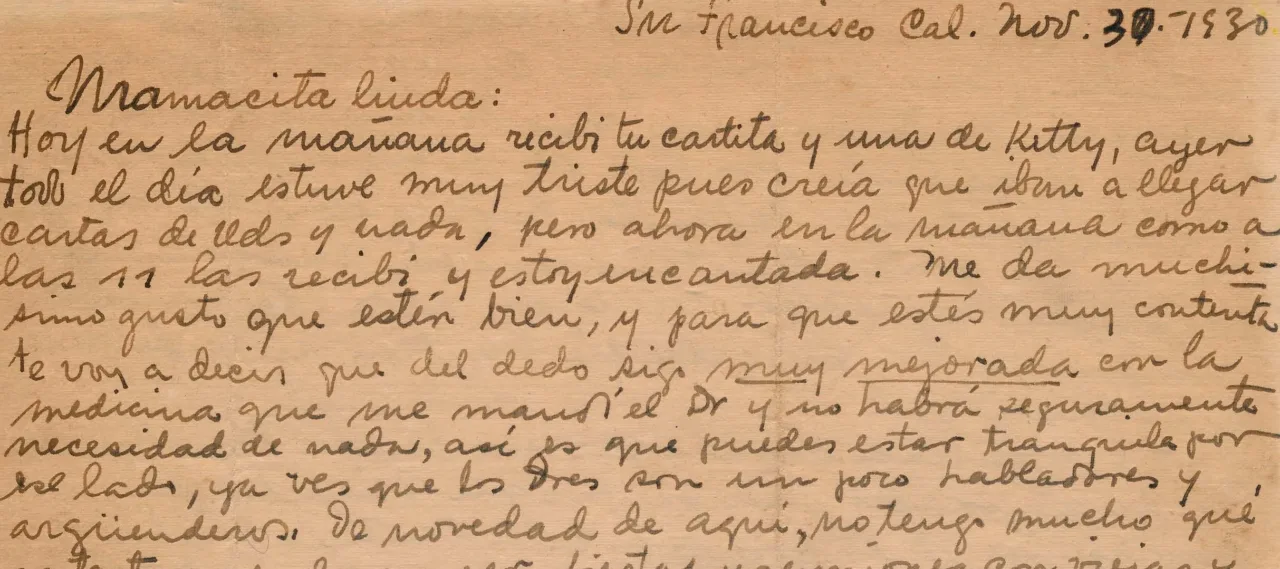 Sn Francisco Cal. Nov. 30.-1930
Mamacita linda:
Hoy en la mañana recibi tu cartita y una de Kitty, ayer
todo el día estuve muy triste pues creía que iban a llegar
cartas de Uds y nada, pero ahora en la mañana como a
las 11 las recibi y estoy encantada. Me da muchi-
simo gusto que estén bien, y para que estés muy contenta
te voy a decir que del dedo sigo muy mejorada con la
medicina que me mandó el Dr y no habrá seguramente
necesidad de nada, así es que puedes estar tranquila por
ese lado, ya ves que los Dres son un poco habladores y
argüenderos. De novedad de aquí, no tengo mucho qué